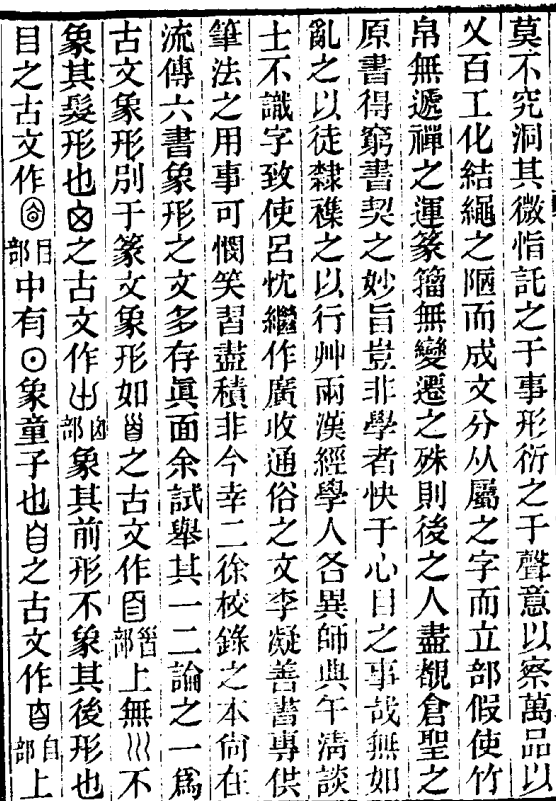 莫不究洞其微恉託之于事形衍之于聲意以察萬品以
乂百工化結繩之陋而成文分从屬之字而立部假使竹
帛無遞禪之運篆籀無變遷之殊則後之人盡覩倉聖之
原書得窮書契之妙旨豈非學者快于心目之事哉無如
亂之以徒隸襍之以行艸兩漢經學人各異師典午淸談
士不識字致使呂忱繼作廣收通俗之文李凝善書專供
筆法之用事可憫笑習盡積非今幸二徐校錄之本尙在
流傳六書象形之文多存眞面余試舉其一二論之一爲
古文象形別于篆文象形如𦣻之古文作𦣻部上無巛不
象其髮形也囟之古文作囟部象其前形不象其後形也
目之古文作目部中有⊙象童子也自之古文作自部上